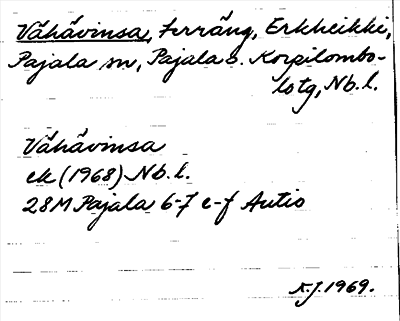 Vähävinsa, terräng, Erkheikki,
Pajala sn, Pajala o. Korpilombo-
lo tg, Nb. l.
Vähävinsa
ek (1968) Nb. l.
28M Pajala 6-7 e-f Autio
K.J. 1969.